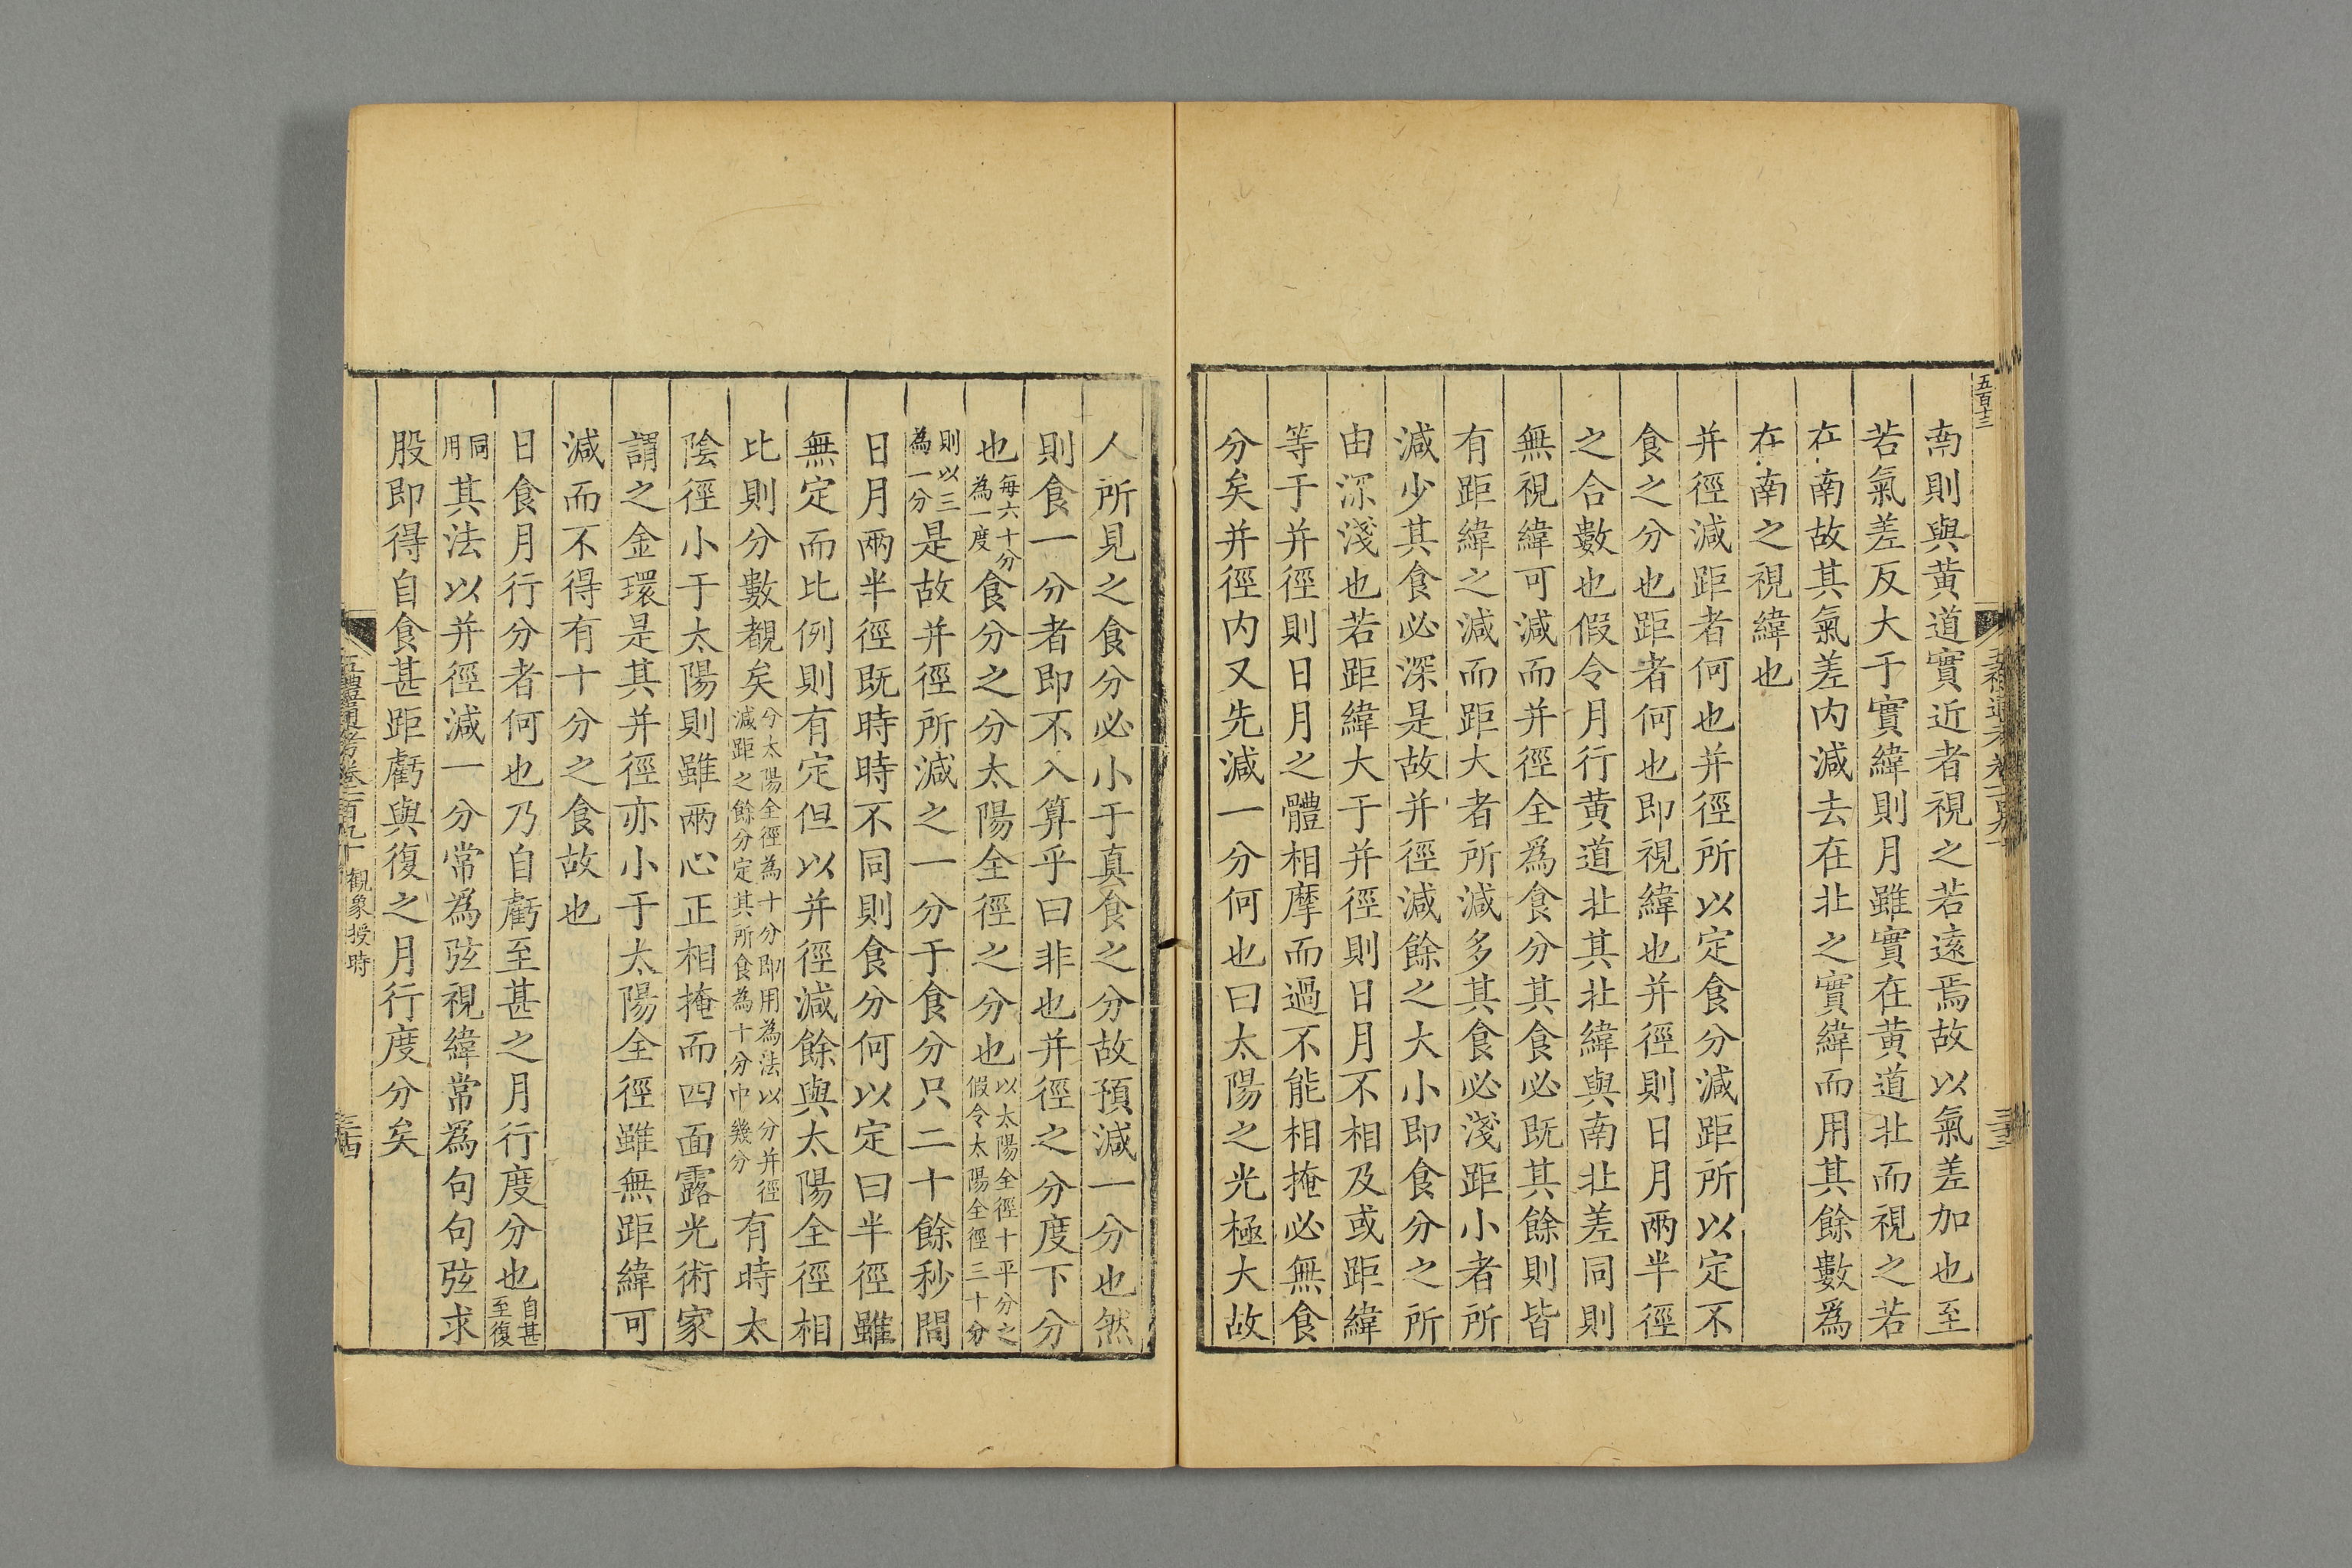 五百十三
南則與黄道實近者視之若逺焉故以氣差加也至
若氣差反大于實緯則月雖實在黄道北而視之若
在南故其氣差内減去在北之實緯而用其餘數爲
在南之視緯也
并徑減距者何也并徑所以定食分減距所以定不
食之分也距者何也即視緯也并徑則日月兩半徑
之合數也假令月行黄道北其北緯與南北差同則
無視緯可減而并徑全爲食分其食必既其餘則皆
有距緯之減而距大者所減多其食必淺距小者所
減少其食必深是故并徑減餘之大小即食分之所
由深淺也若距緯大于并徑則日月不相及或距緯
等于并徑則日月之體相摩而過不能相掩必無食
分矣并徑内又先減一分何也曰太陽之光極大故
人所見之食分必小于真食之分故預減一分也然
則食一分者即不入算乎曰非也并徑之分度下分
也每六十分為一度食分之分太陽全徑之分也以太陽全徑十平分之假令太陽全徑三十分
則以三為一分是故并徑所減之一分于食分只二十餘秒間
日月兩半徑既時時不同則食分何以定曰半徑雖
無定而比例則有定但以并徑減餘與太陽全徑相
比則分數覩矣分太陽全徑為十分即用為法以分并徑減距之餘分定其所食為十分中幾分有時太
陰徑小于太陽則雖兩心正相掩而四面露光術家
謂之金環是其并徑亦小于太陽全徑雖無距緯可
減而不得有十分之食故也
日食月行分者何也乃自虧至甚之月行度分也自甚至復
同用其法以并徑減一分常爲弦視緯常爲句句弦求
股即得自食甚距虧與復之月行度分矣
觀象授時